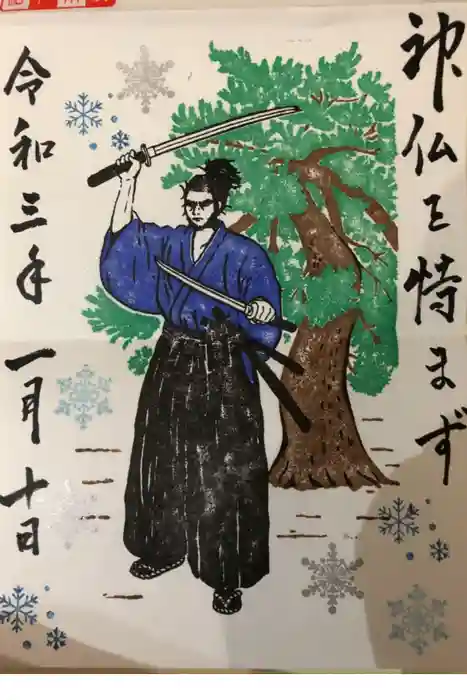 神仏を恃まず
令和三年一月十日